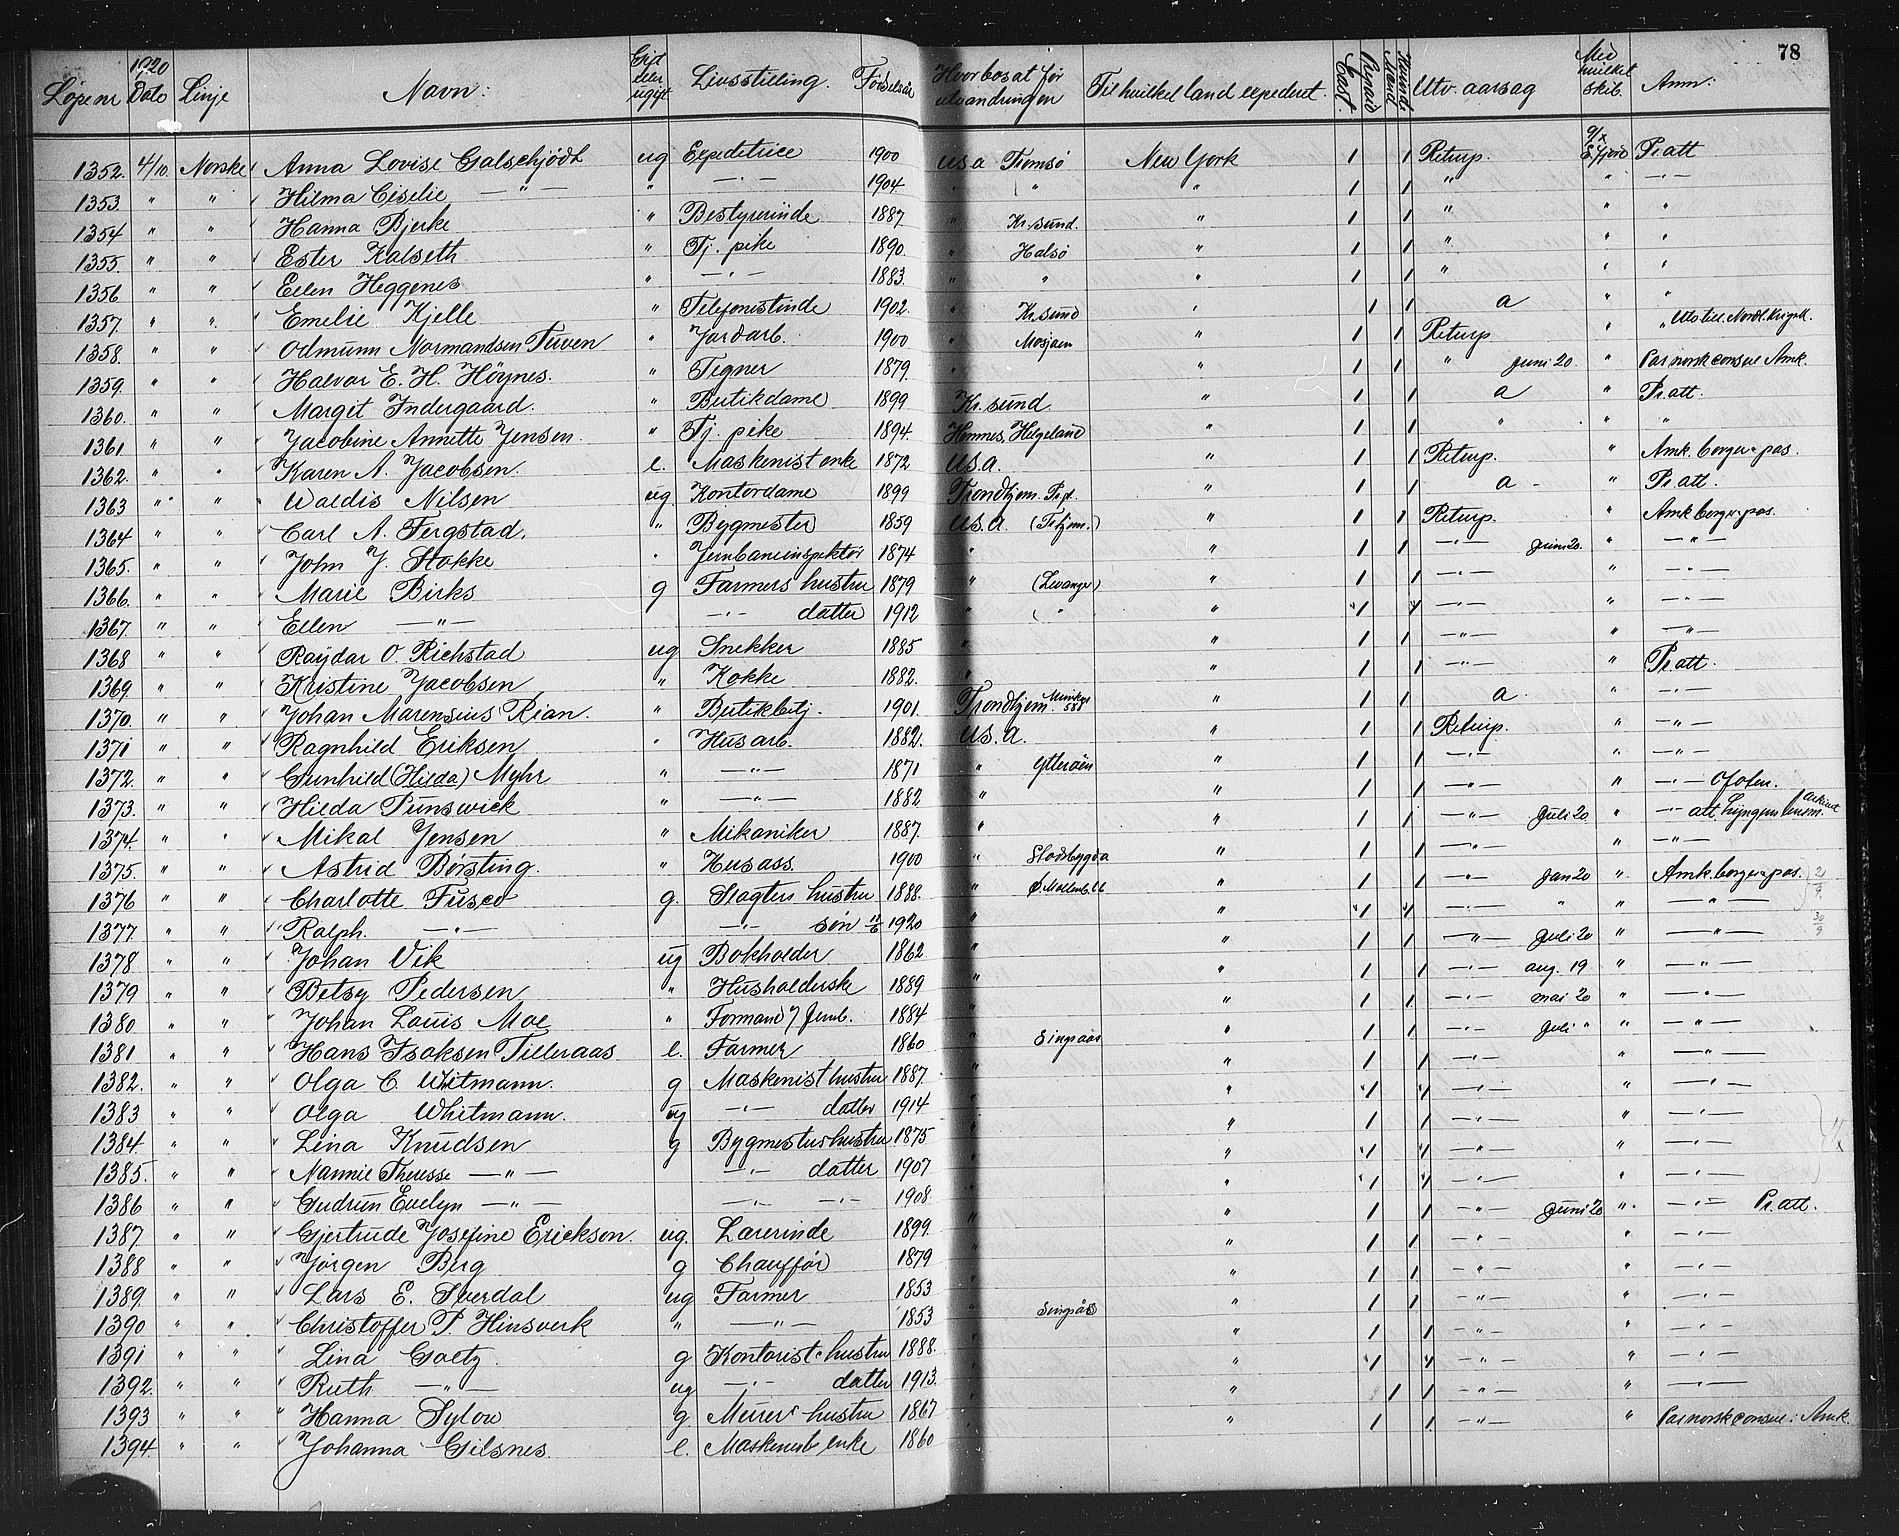 78
Løpenr 1920 Dato Linje Navn: Gift eller ugift Livsstilling. Fødselsår Hvor bosat før utvandringen Til hvilket land expederet. Utv. aarsag Med hvilket skib. Anm:
1352. 4/10. Norske Anna Lovise Galschjødt ug Expeditrice 1900 U.S.A Tromsø New York 1 1 Returp. 9/X Pr att
1353. " " Hilma Giselie — " — " — " — 1904. " " 1 1 " " — " —
1354 " " Hanna Bjerke " Bestyrerinde 1887. " Kr.sund. " 1 1 " " "
1355. " " Ester Kalseth " Tj. pike 1890. " Halsø " 1 1 " " "
1356 " " Ellen Heggenes " — " — 1883. " " " 1 1 " " "
1357. " " Emelie Kjelle " Telefonistinde 1902. " Kr.sund " 1 1 a " "
1358. " " Odmunn Normandsen Tuven " Jordarb. 1900 " Mosjøen " 1 1 Returp "
1359. " " Halvar E. H. Høynes. " Tegner 1879. " " 1 1 " Juni 20. " Pas norsk consul Amk.
1360. " " Margit Indergaard. " Butikdame 1899 Kr.sund. " 1 1 a " Pr att.
1361 " " Jacobine Annette Jensen. " Tj. pike 1894. Hemnes, Helgeland " 1 1 " " "
1362. " " Karen A. Jacobsen. e. Maskinist enke 1872 U.S.A. " 1 1 Returp. " Amk. borger-pas.
1363 " " Waldis Nilsen ug Kontordame 1899 Trondhjem. " 1 1 a - " Pr att.
1364 " " Carl A. Fergstad. " Bygmester 1859 U.S.A. (Trhjem.) " 1 1 Returp. " Amk borger-pas.
1365. " " John J. Stokke " Jernbaneinspektør 1874 " " 1 1 — " — Juni 20. " — " —
1366. " " Marie Birks g Farmers hustru 1879 " (Levanger) " 1 1 — " — " — " —
1367. " " Ellen — " — — " — datter 1912 " ( " " 1 1 — " — " — " —
1368 " " Raydar O. Richstad ug Snekker 1885 " " 1 1 — " — " — " —
1369. " " Kristine Jacobsen " Kokke 1882. " " 1 1 — " — " Pr att.
1370. " " Johan Marensius Rian. " Butikbetj. 1901. Trondhjem. " 1 1 a. " — " —
1371 " " Ragnhild Eriksen " Husarb. 1882. U.S.A. " 1 1 Returp. " — " —
1372. " " Gunhild (Hilda) Myhr " — " — 1871 " Ytterøen " 1 1 — " — " — " —
1373. " " Hilda Punswick " — " — 1882 " " 1 1 — " — " — " — Ofoten.
1374. " " Mikal Jensen " Mikaniker 1887. " " 1 1 — " — Juli 20. " — " — att. Lyngens
1375. " " Astrid Børsting. " Husass. 1900 " Stadsbygda " 1 1 — " — " — " —
1376 " " Charlotte Fusco g. Slagters hustru 1888. " " 1 1 — " — Jan 20 " Amk. borger-pas.
1377. " " Ralph. — " — — " — søn 1920 " " 1 1 — " — " " — " —
1378 " " Johan Vik ug Bokholder 1862. " " 1 1 — " — Juli 20 " — " —
1379 " " Betsy Pedersen " Husholderske 1889 " " 1 1 — " — aug. 19 " — " —
1380 " " Johan Louis Moe " Formand v/ Jernb. 1884 " " 1 1 — " — mai 20 " — " —
1381 " " Hans Isaksen Tilleraas e. Farmer 1860 " Singsaas " 1 1 — " — Juli " " — " —
1382. " " Olga C. Whitmann. g Maskinist hustru 1887. " " 1 1 — " — " — " —
1383 " " Olga Whitmann. ug — " — datter 1914 " " 1 1 — " — " — " —
1384. " " Lina Knudsen g Bygmesters hustru 1875 " " 1 1 — " — " — " —
1385. " " Nannie Theresse — " — — " — datter 1907 " " 1 1 — " — " — " —
1386 " " Gudrun Evelyn — " — — " — — " — 1908. " " 1 1 — " — " — " —
1387 " " Gjertrude Josefine Erickson. ug. Lærerinde 1899. " " 1 1 — " — Juni 20 " — " — Pr. att.
1388 " " Jørgen Berg g Chauffør 1879 " " 1 1 — " — " — " —
1389. " " Lars E. Sverdal ug Farmer 1853 " " 1 1 — " — " — " —
1390 " " Christoffer P. Hinsverk " — " — 1853 " Singsås " 1 1 — " — " — " —
1391 " " Lina Goetz. g Kontorist hustru 1888. " " 1 1 — " — " — " —
1392. " " Ruth — " — ug — " — datter 1913. " " 1 1 — " — " — " —
1393 " " Hanna Sylow g Murer hustru 1867 " " 1 1 — " — " — " —
1394. " " Johanna Gilsnes. e. Maskinist enke 1860 " " 1 1 — " — " Pas norsk consul. Amk.